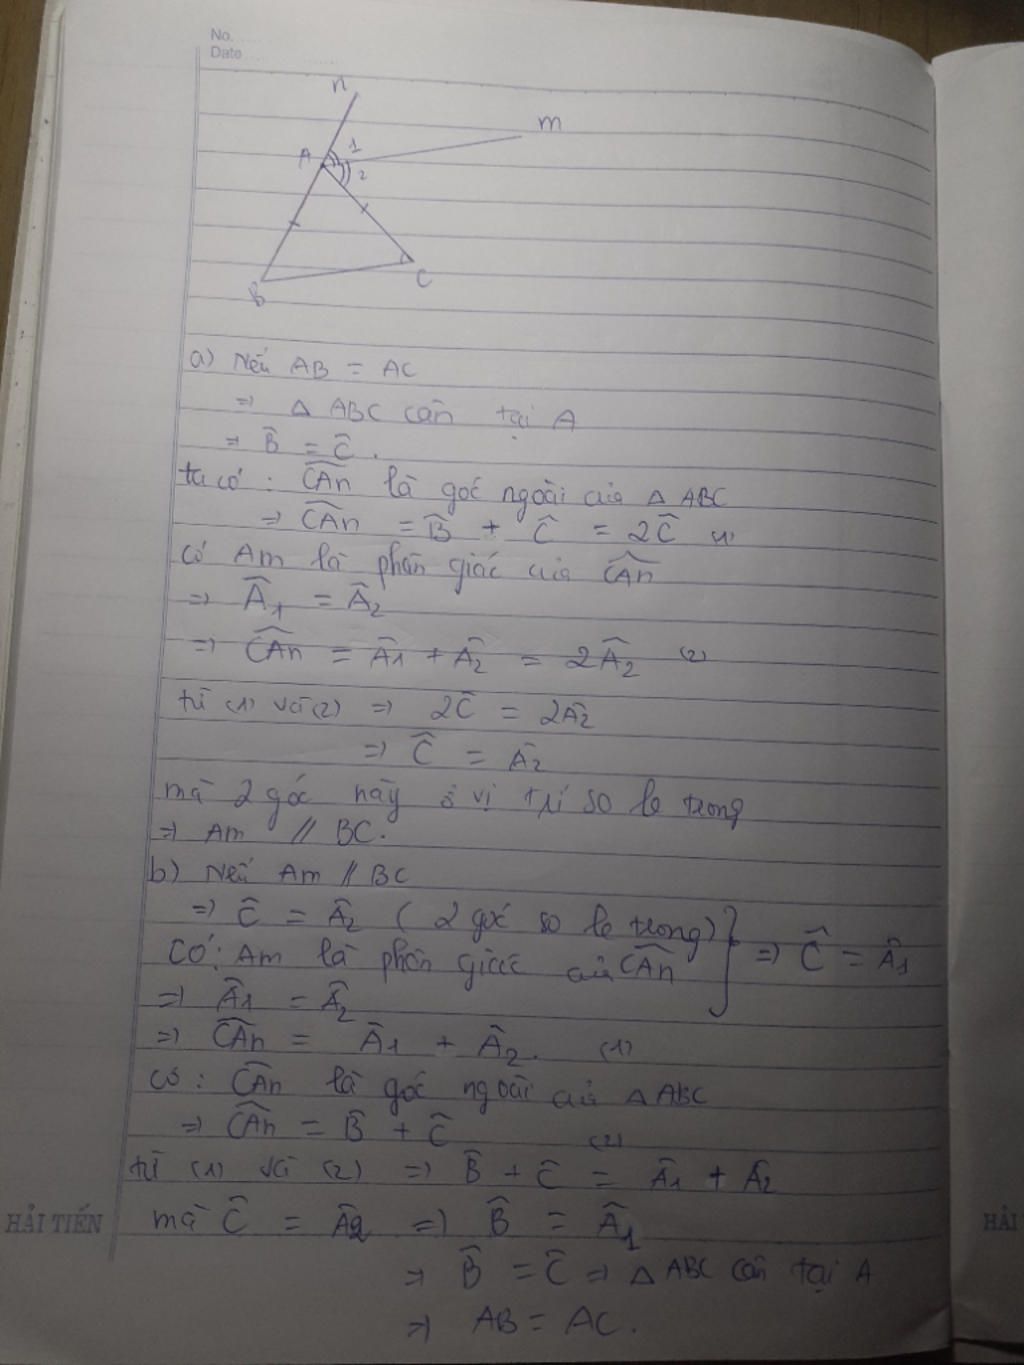 No.
Date
n
m
A
1
2
B
C
a) Nếu AB = AC
=> Δ ABC cân tại A
=> B̂ = Ĉ.
ta có : CAn là góc ngoài của Δ ABC
=> CAn = B̂ + Ĉ = 2Ĉ (1)
có Am là phân giác của CAn
=> Â1 = Â2
=> CAn = Â1 + Â2 = 2Â2 (2)
từ (1) và (2) => 2Ĉ = 2Â2
=> Ĉ = Â2
mà 2 góc này ở vị trí so le trong
=> Am // BC.
b) Nếu Am // BC
=> Ĉ = Â2 ( 2 góc so le trong)
Có: Am là phân giác của CAn } => Ĉ = Â1
=> Â1 = Â2
=> CAn = Â1 + Â2. (1)
có : CAn là góc ngoài của Δ ABC
=> CAn = B̂ + Ĉ (2)
từ (1) và (2) => B̂ + Ĉ = Â1 + Â2
mà Ĉ = Â2 => B̂ = Â1
=> B̂ = Ĉ => Δ ABC cân tại A
=> AB = AC.
HẢI TIẾN
HẢI